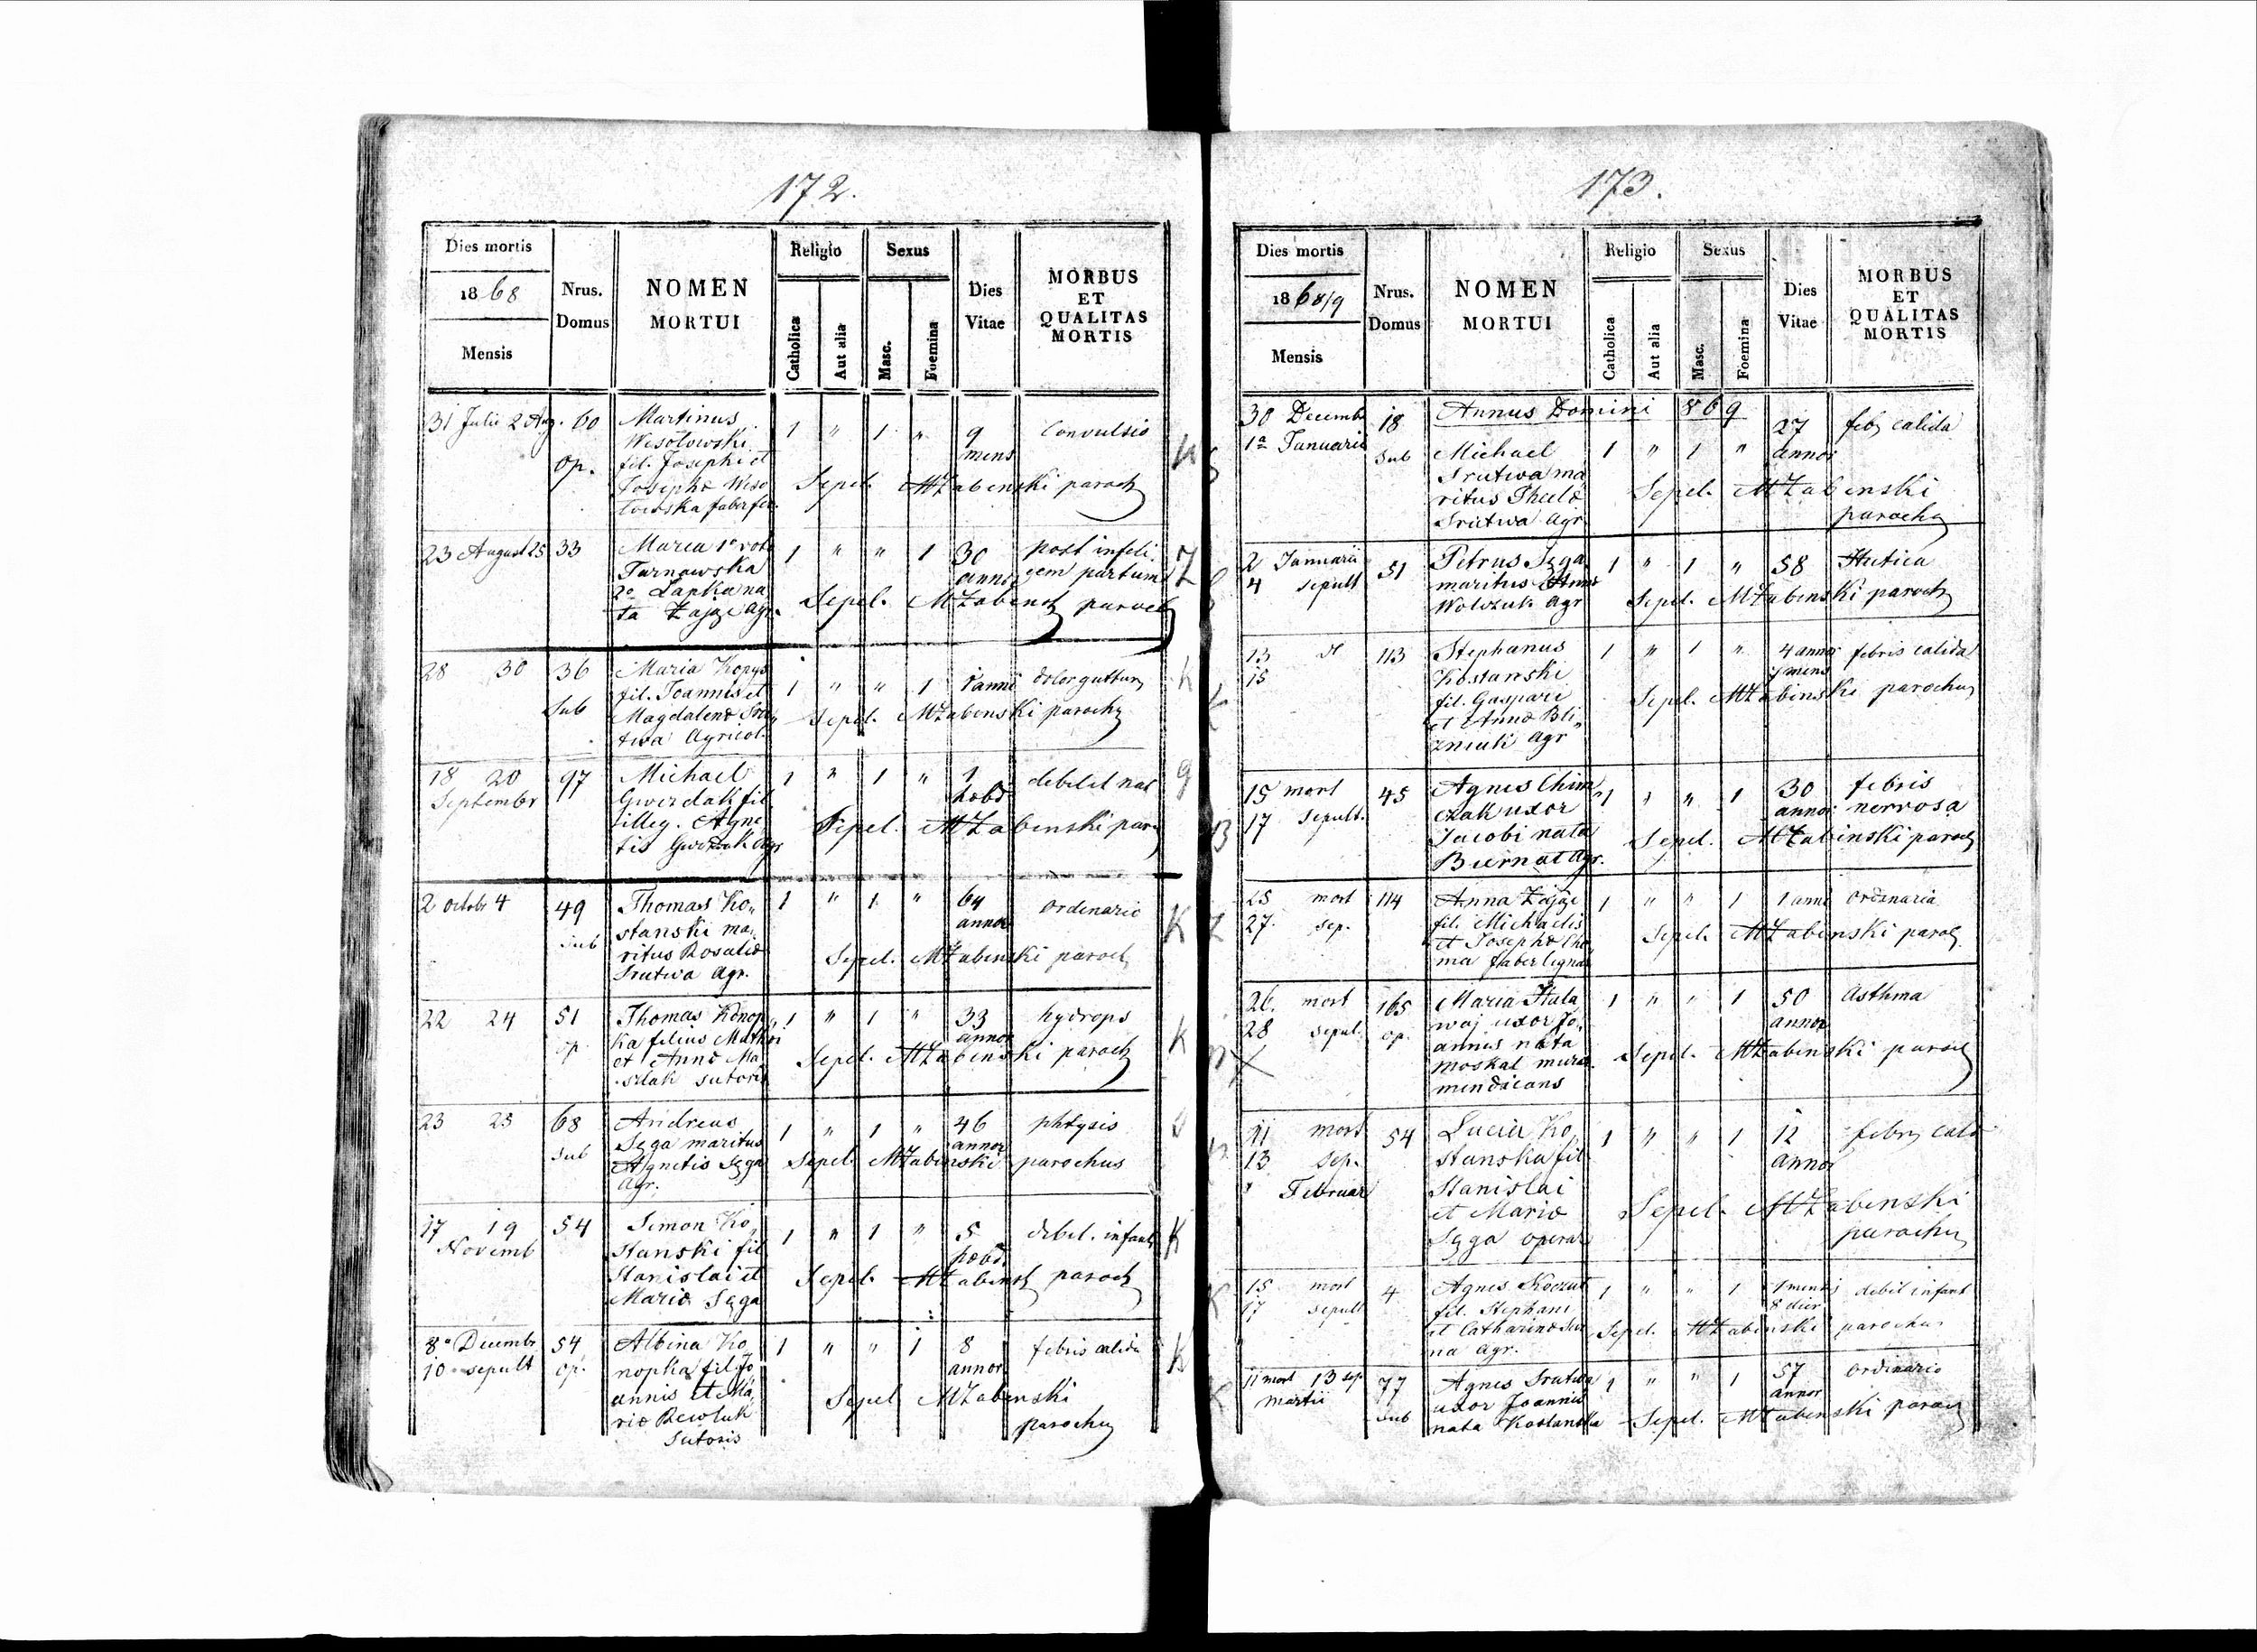 172.
Dies mortis
1868
Mensis
Nrus.
Domus
NOMEN
MORTUI
Religio
Catholica
Aut alia
Sexus
Masc.
Foemina
Dies
Vitae
MORBUS
ET
QUALITAS
MORTIS
31 Julii 2 Aug. 60 Martinus 1 " 1 " 9 Convulsio
op. Wesołowski mens
fil. Josephi et
Josephæ Weso Sepel. MŻabenski paroch
łowska faber fer.
23 August 25 33 Maria 1o voto 1 " " 1 30 post infeli
Tarnawska annor cem partum
2o Łapka na
ta Zając Agr. Sepel. MŻabensk paroch
28 30 36 Maria Kopys 1 " " 1 1 anni dolor guttur
Sub fil. Joannis et
Magdalenæ Sru Sepel. MŻabenski parochus
twa Agricol.
18 20 97 Michael 1 " 1 " 1 debilit nat
September Gwizdak fil hebd
illeg. Agne Sepel. MŻabenski par
tis Gwizdak Agr
2 octobr 4 49 Thomas Ko 1 " 1 " 64 ordinario
sub stanski ma annor
ritus Rosaliæ Sepel. MŻabenski paroch
Srutwa Agr.
22 24 51 Thomas Konop 1 " 1 " 33 hydrops
op ka filius Mathei annor
et Annæ Ma Sepel. MŻabenski paroch
szlak sutoris
23 25 68 Andreas 1 " 1 " 46 phtysis
sub Sęga maritus annor
Agnetis Sęga Sepel. MŻabenski parochus
Agr.
17 19 54 Simon Ko 1 " 1 " 5 debil. infant
Novemb stanski fil hebd
Stanislai et Sepel. MŻabensk paroch
Mariæ Sęga
8a Decembr 54 Albina Ko 1 " " 1 8 febris calida
10 sepult op. nopka fil. Jo annor
annis et Ma Sepel MŻabenski
riæ Rewluk parochus
Sutoris
173.
Dies mortis
1868/9
Mensis
Nrus.
Domus
NOMEN
MORTUI
Religio
Catholica
Aut alia
Sexus
Masc.
Foemina
Dies
Vitae
MORBUS
ET
QUALITAS
MORTIS
30 Decembr 18 Annus Domini 869 27 febr calida
1a Januarii sub Michael 1 " 1 " annor
Srutwa ma
ritus Theclæ Sepel. MŻabenski
Srutwa Agr parochus
2 Januarii 51 Petrus Sęga 1 " 1 " 58 Hectica
4 sepult maritus Annæ
Wołczuk Agr Sepel. MŻabenski paroch
13 113 Stephanus 1 " 1 " 4 annor febris calida
15 Kostanski mens
fil. Gaspari Sepel. MŻabenski parochus
et Annæ Bli
zniak Agr
15 mort 45 Agnes Chim 1 " " 1 30 febris
17 sepult. czak uxor annor nervosa
Jacobi nata Sepel. MŻabenski paroch
Biernat Agr.
25 mort 114 Anna Zając 1 " " 1 1 anni ordinaria
27 sep. fil. Michaelis
et Josephæ Cho Sepel. MŻabenski paroch
ma faber lignar
26 mort 165 Maria Hała 1 " " 1 50 Asthma
28 sepul. op. waj uxor Jo annor
annis nata
Moskal mura Sepel. MŻabenski paroch
mendicans
11 mort 54 Lucia Ko 1 " " 1 12 febr calid
13 sep. stanska fil annor
Februar Stanislai
et Mariæ Sepel. MŻabenski
Sęga operar parochus
15 mort 4 Agnes Koczut 1 " " 1 1 mensi debil infant
17 sepult fil. Stephani 8 dier
et Catharinæ Sepel. MŻabenski parochus
na Agr.
11 mort 13 sep 77 Agnes Srutwa 1 " " 1 57 ordinario
Martii sub uxor Joannis annor
nata Kostanska Sepel. MŻabenski paroch